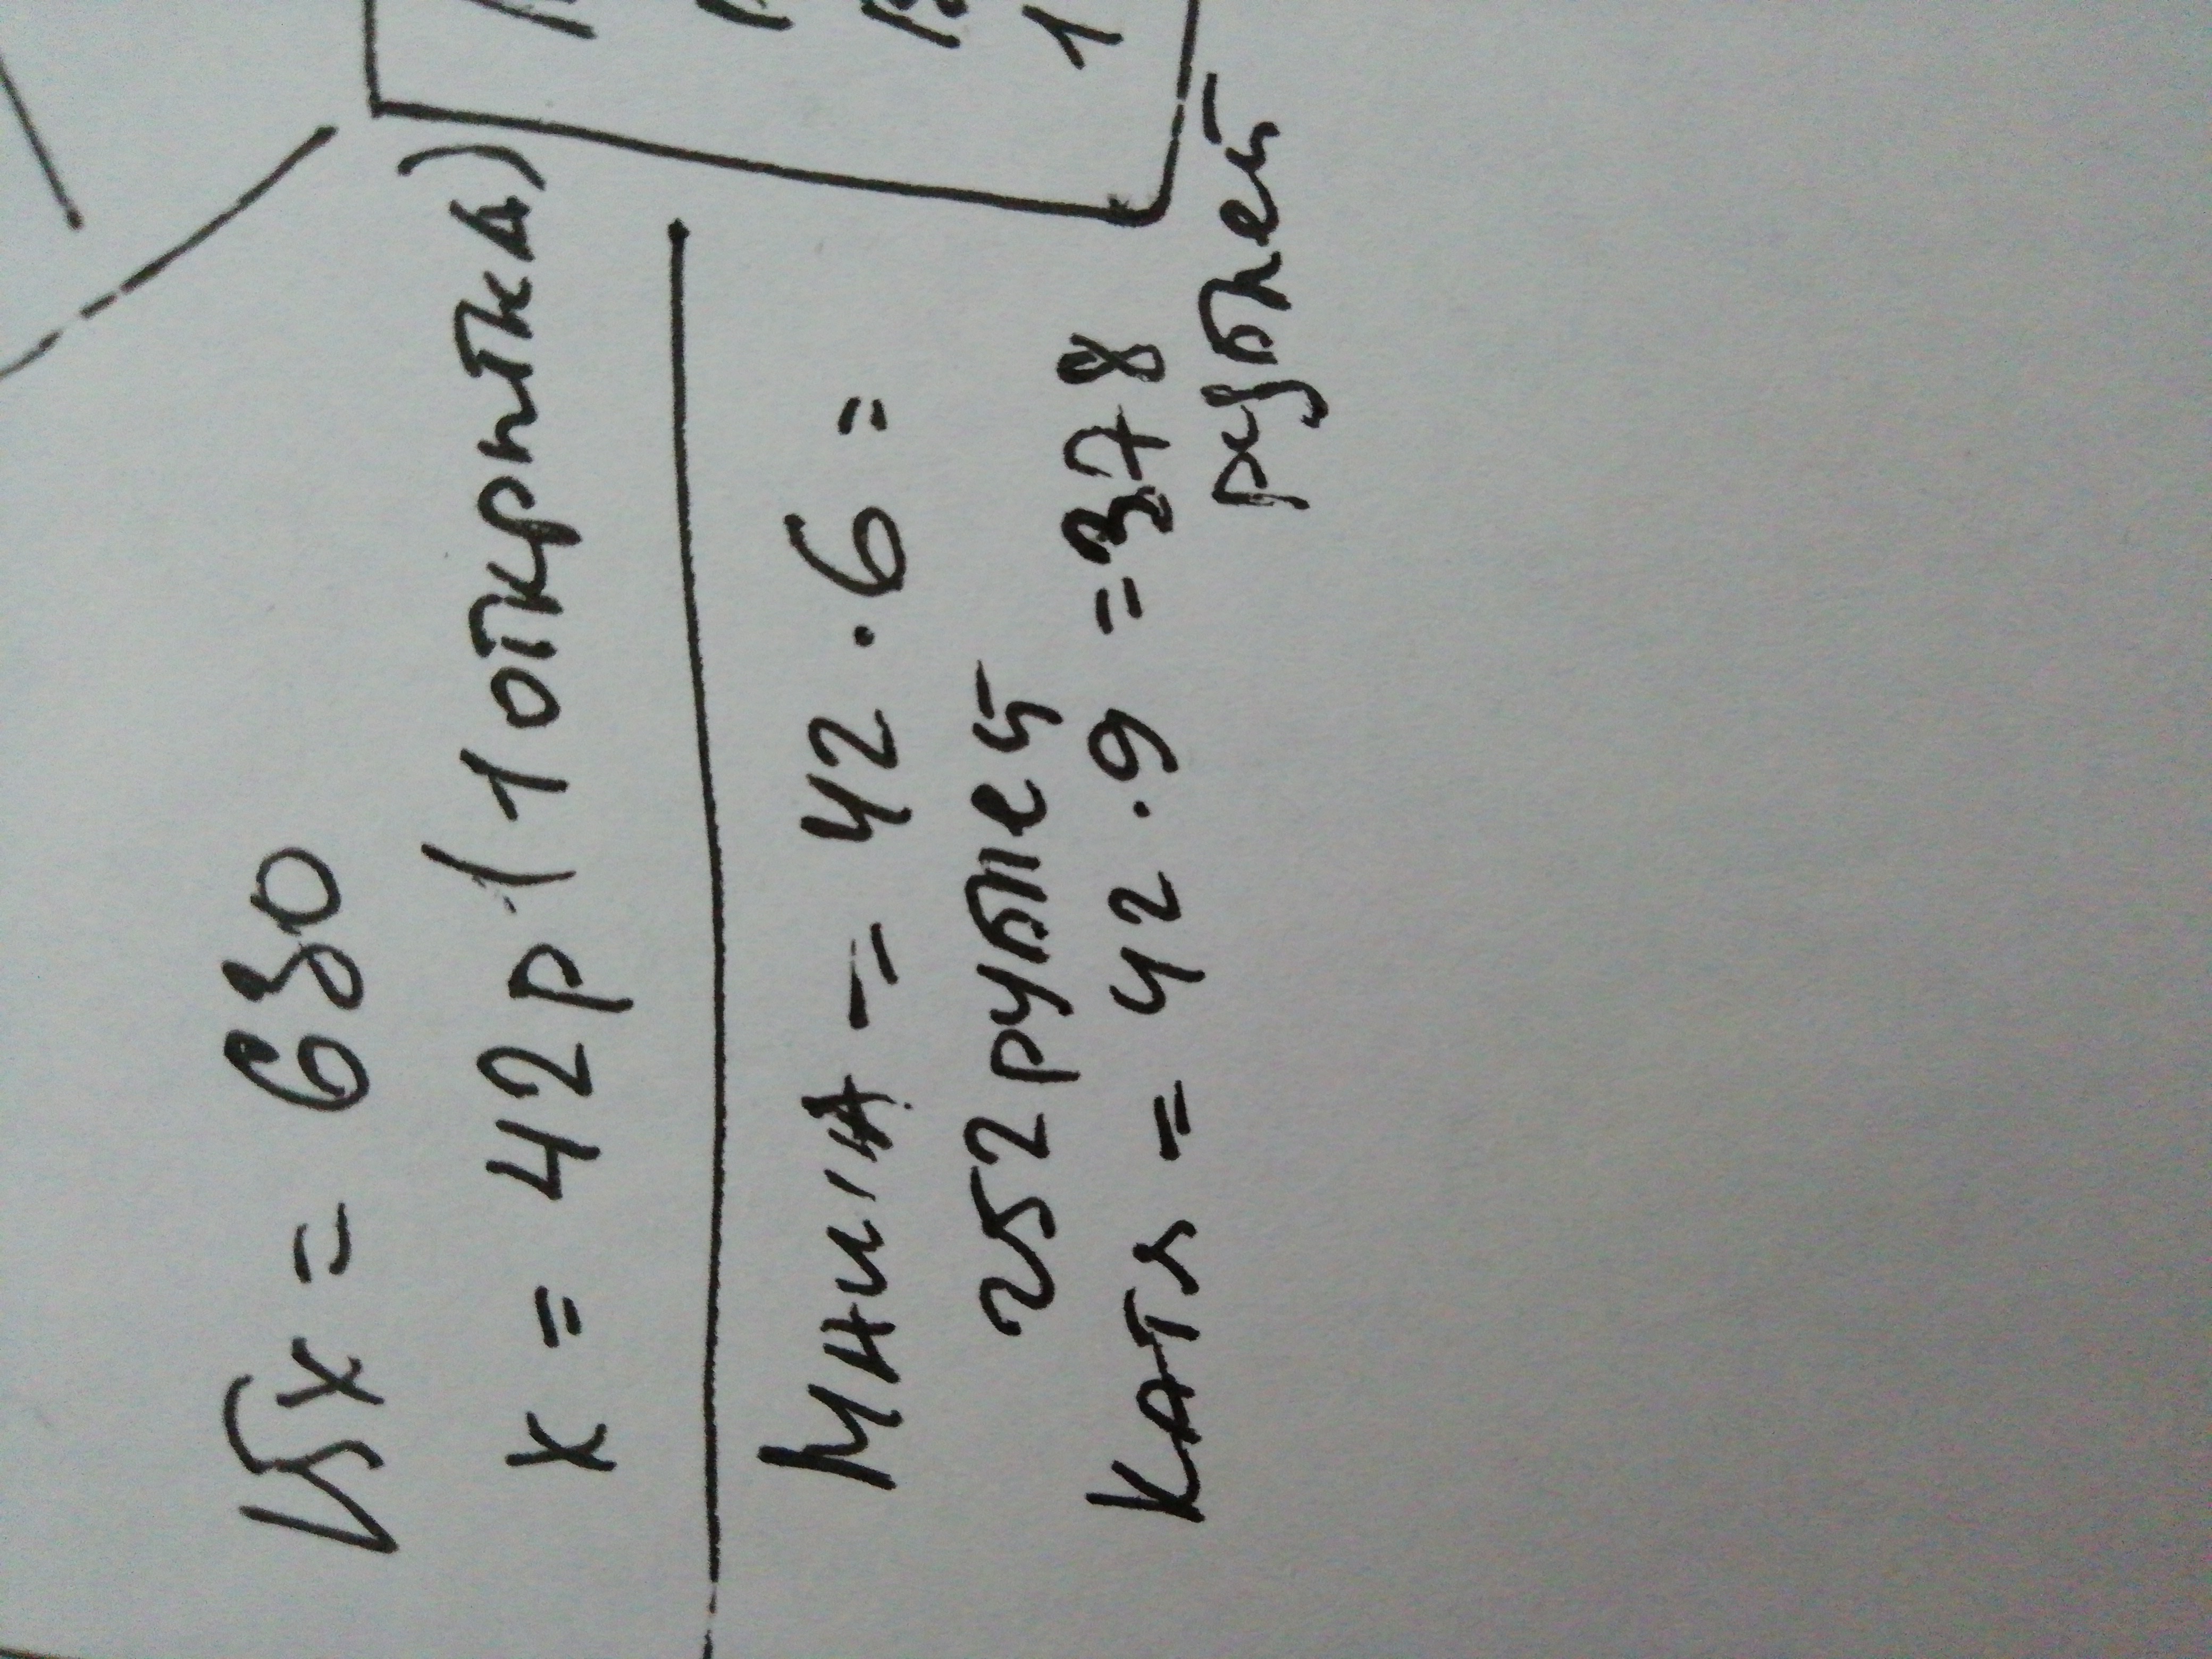 15x = 630
x = 42р (1 открытка)
Мнина - = 42 · 6 =
252 рублей
Катя = 42 · 9 = 378
рублей
1